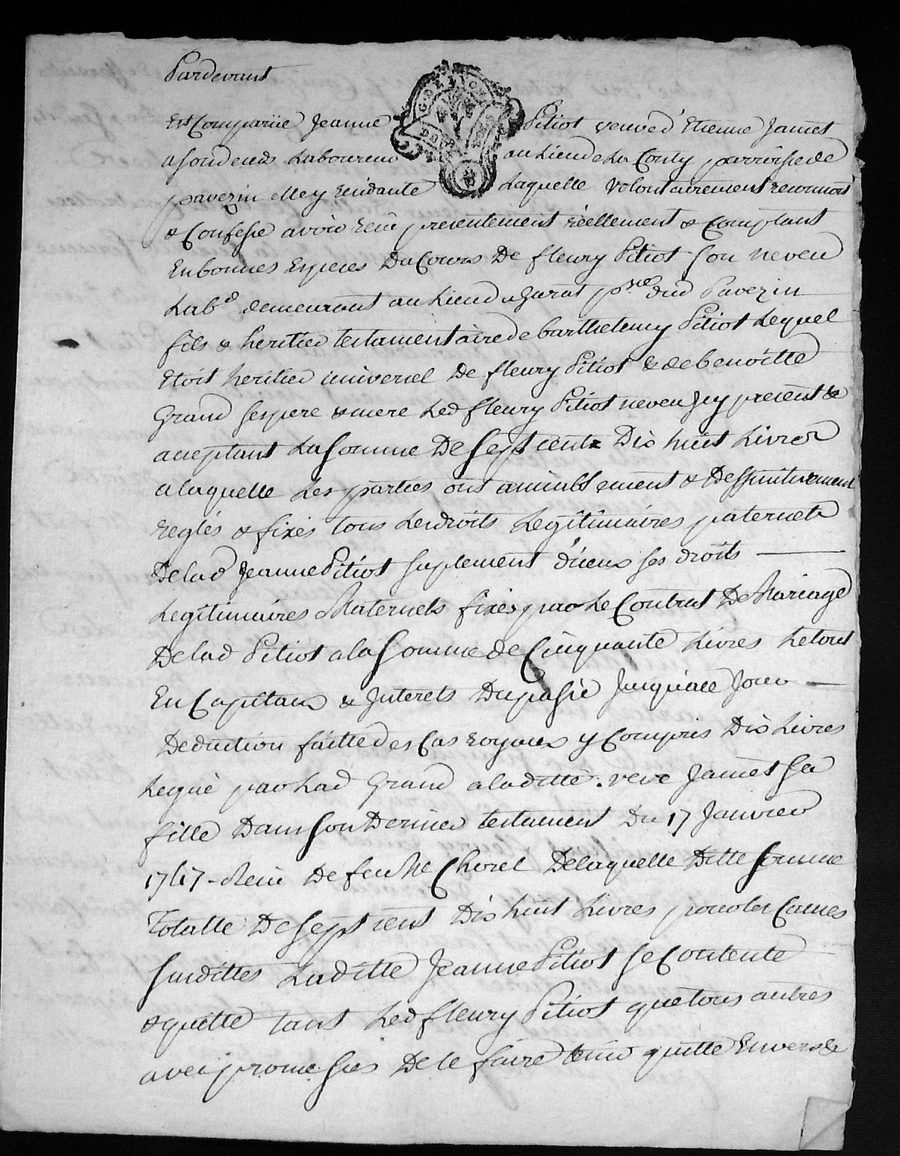 Pardevant
Est Comparüe Jeanne Pitiot veuve d'Etienne James
a son deces Laboureur au Lieu de La Conty parroisse de
pavezin elle y residante Laquelle volontairement reconnoit
& Confesse avoir reçû presentement réellement & Comptant
En bonnes Especes Du Cours De fleury Pitiot son neveu
Lab.r demeurant au Lieu d'agarat p.sse dud Pavezin
fils & heritier testamentaire de barthelemy Pitiot Lequel
Etoit heritier universel De fleury Pitiot & de benoitte
Grand ses pere & mere Led fleury Pitiot neveu jcy present &
acceptant La Somme De Sept cents Dix huit Livres
a laquelle Les parties ont amiablement & Deffinitivement
reglés & fixés tous Les droits Legitimaires paternels
De lad Jeanne Pitiot suplement d'iceux ses droits
Legitimaires Maternels fixés par Le Contrat De Mariage
De lad Pitiot a la Somme de Cinquante Livres Le tout
En Capitaux & Interets Du passé Jusqu'a ce Jour
Deduction faitte des Cas royaux y Compris Dix Livres
Legué par Lad Grand a laditte veve James Sa
fille Dans son Dernier testament Du 17 Janvier
1747 Reçû De feu Me Chorel De laquelle Ditte Somme
Totalle De Sept cent Dix huit Livres pour les Causes
Susdittes Laditte Jeanne Pitiot se Contente
& quitte tant Led fleury Pitiot que tous autres
avec promesses De le faire tenir quitte Envers &
G. DE LYON